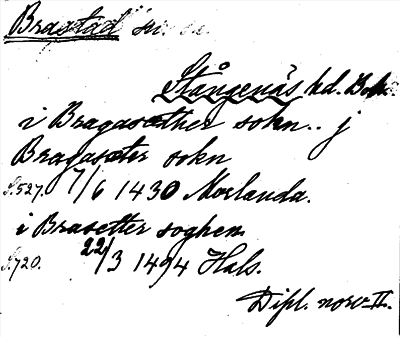 Brastad sn.
Stångenäs hd. Boh.
i Bragasæther sokn.. j
Bragasæter sokn
S.527. 7/6 1430 Morlanda.
i Brasetter soghen
S.720. 22/3 1494 Hals.
Dipl. norv. II.